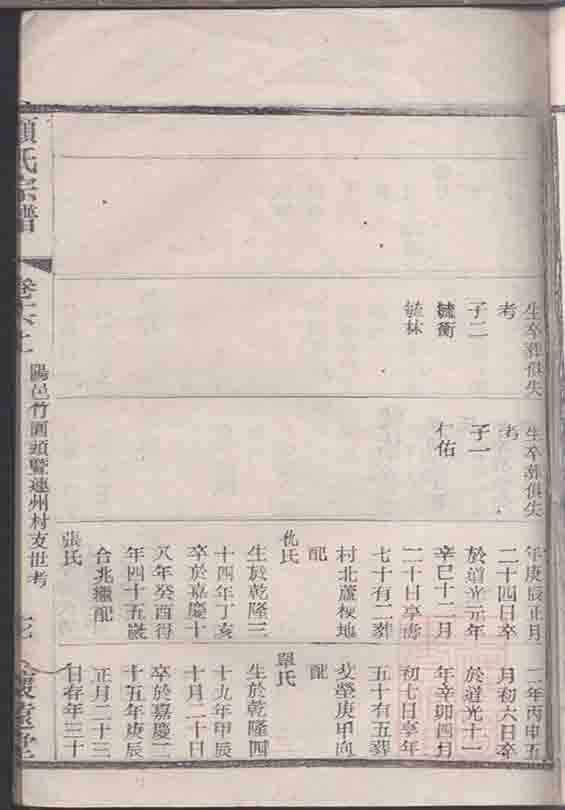 生卒葬俱失
考
子二
毓衡
毓林
生卒葬俱失
考
子一
仁佑
年庚辰正月
二十四日卒
於道光元年
辛巳十二月
二十日享壽
七十有二葬
村北蘆梗地
配
仇氏
生於乾隆三
十四年丁亥
卒於嘉慶十
八年癸酉得
年四十五歲
合兆繼配
張氏
一年丙申五
月初六日卒
於道光十一
年辛卯四月
初七日享年
五十有五葬
癸塋庚甲向
配
單氏
生於乾隆四
十九年甲辰
十月二十日
卒於嘉慶二
十五年庚辰
正月二十三
日存年三十
氏宗譜
卷六上
陽邑竹園頭暨連州村支世考